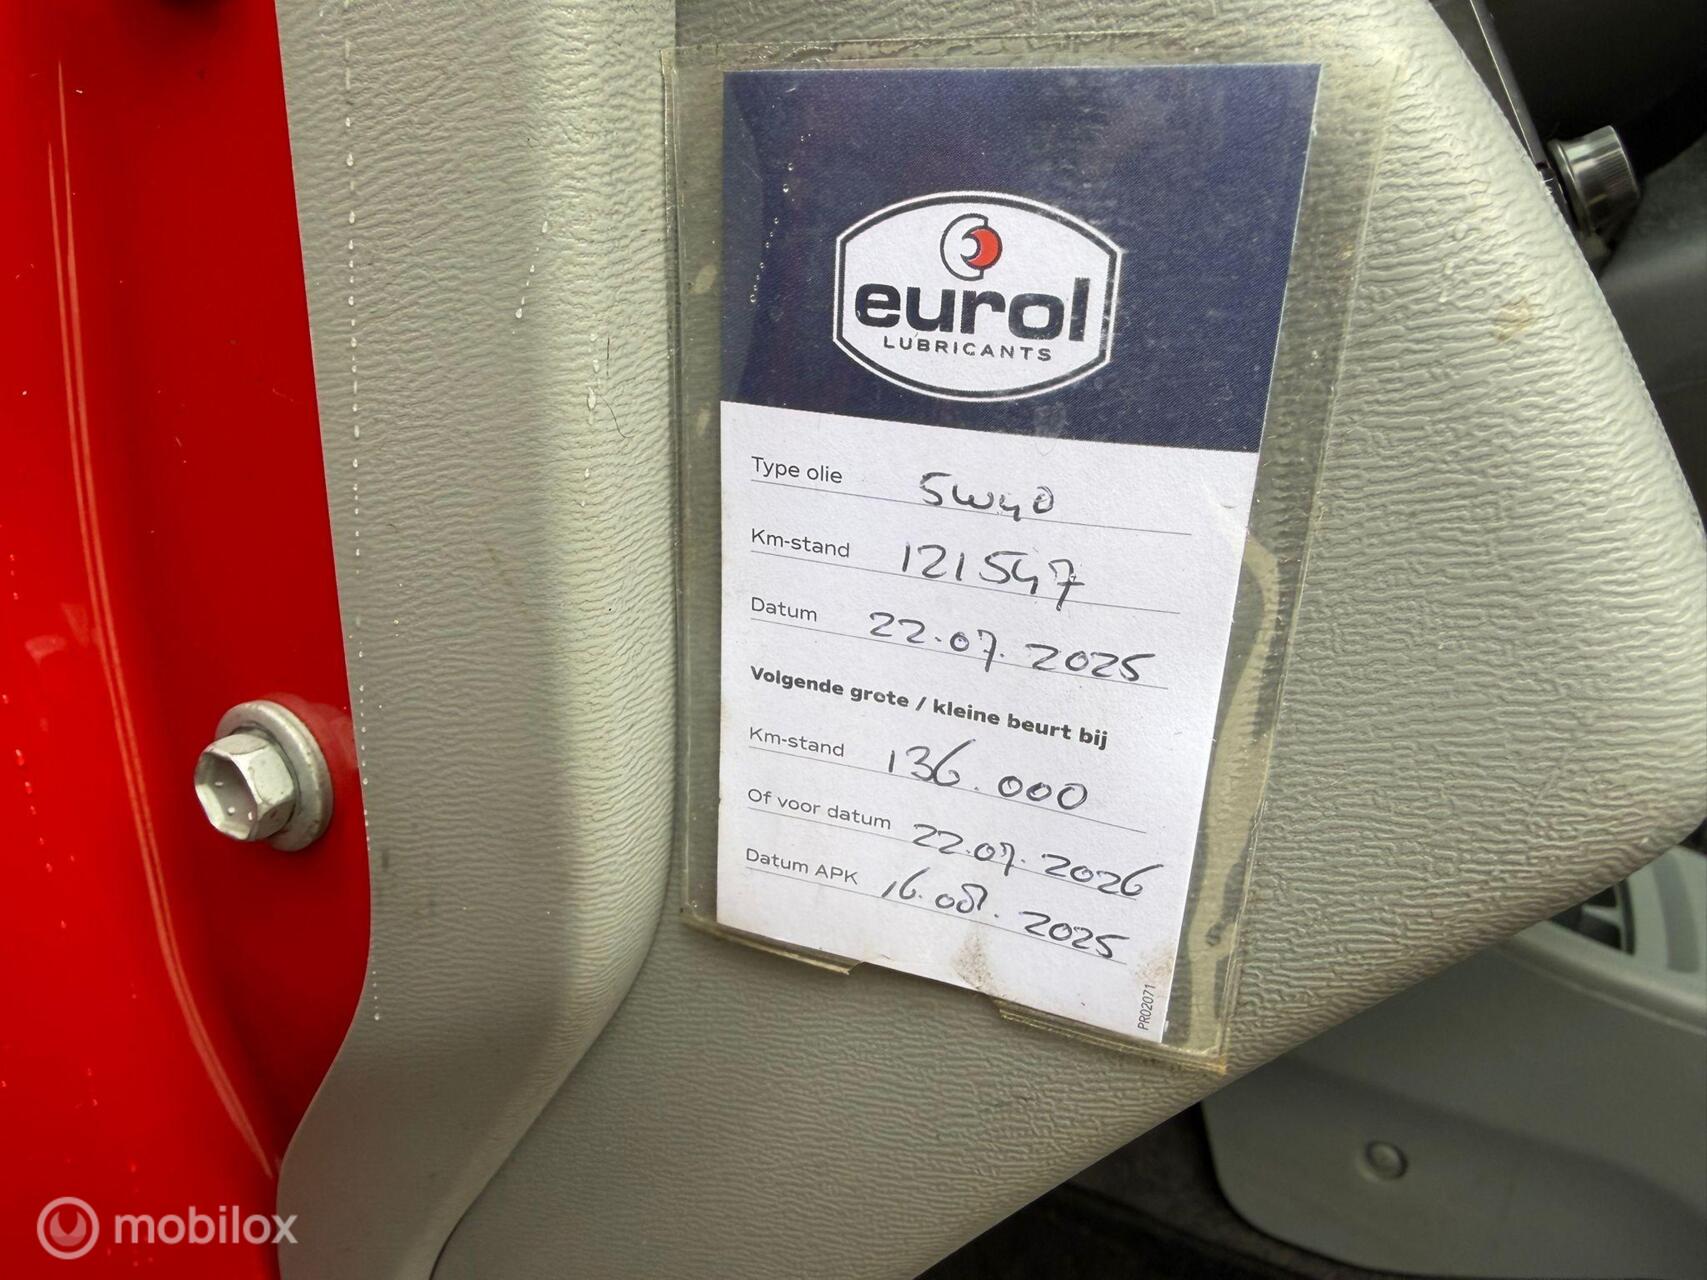 eurol
LUBRICANTS
Type olie 5W40
Km-stand 121547
Datum 22.07.2025
Volgende grote / kleine beurt bij
Km-stand 136.000
Of voor datum 22.07.2026
Datum APK 16.08.2025
PR02071
mobilox